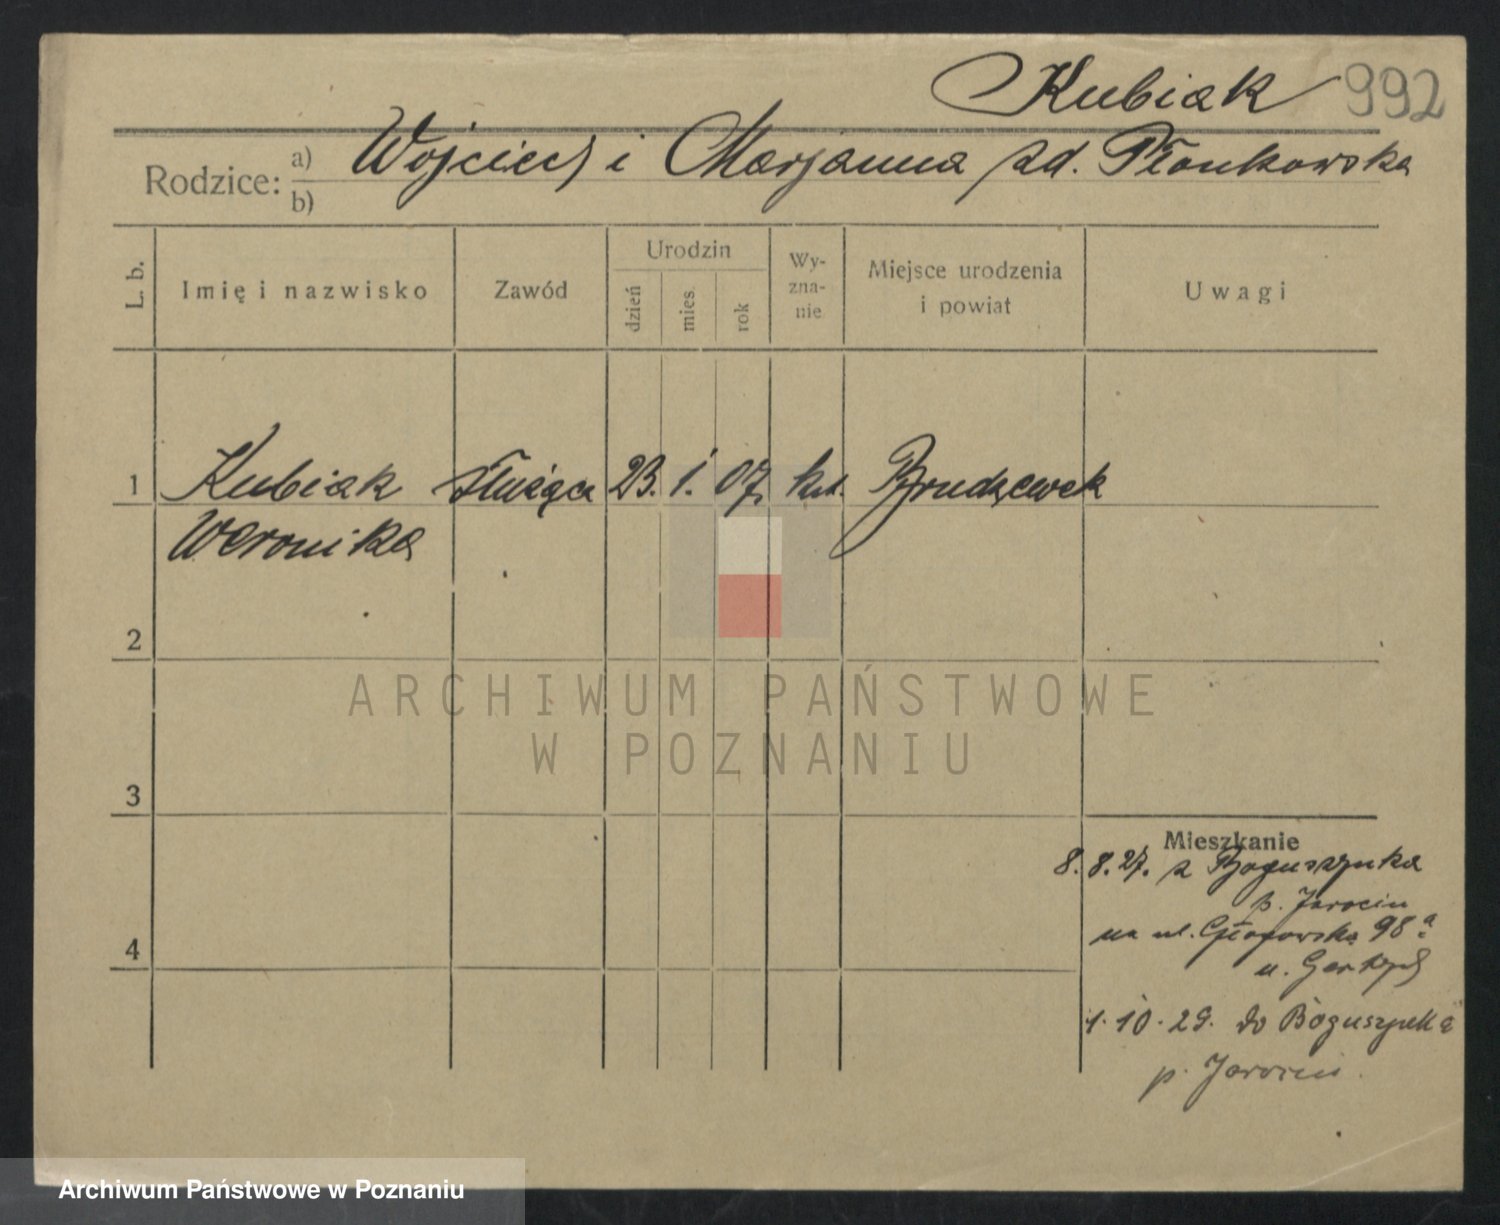 Kubiak 992
Rodzice: a) Wojciech i Marjanna zd. Płonkowska
b)
L. b. Imię i nazwisko Zawód Urodzin dzień mies. rok Wy-zna-nie Miejsce urodzenia i powiat Uwagi
1 Kubiak służąca 23. 1. 07. kat. Brudzewek
Weronika
2
3
Mieszkanie
8.8.27. z Boguszynka
p. Jarocin
4 na ul. Głogowska 98a
u.
1.10.29. do Boguszynka
p. Jarocin
ARCHIWUM PAŃSTWOWE
W POZNANIU
Archiwum Państwowe w Poznaniu